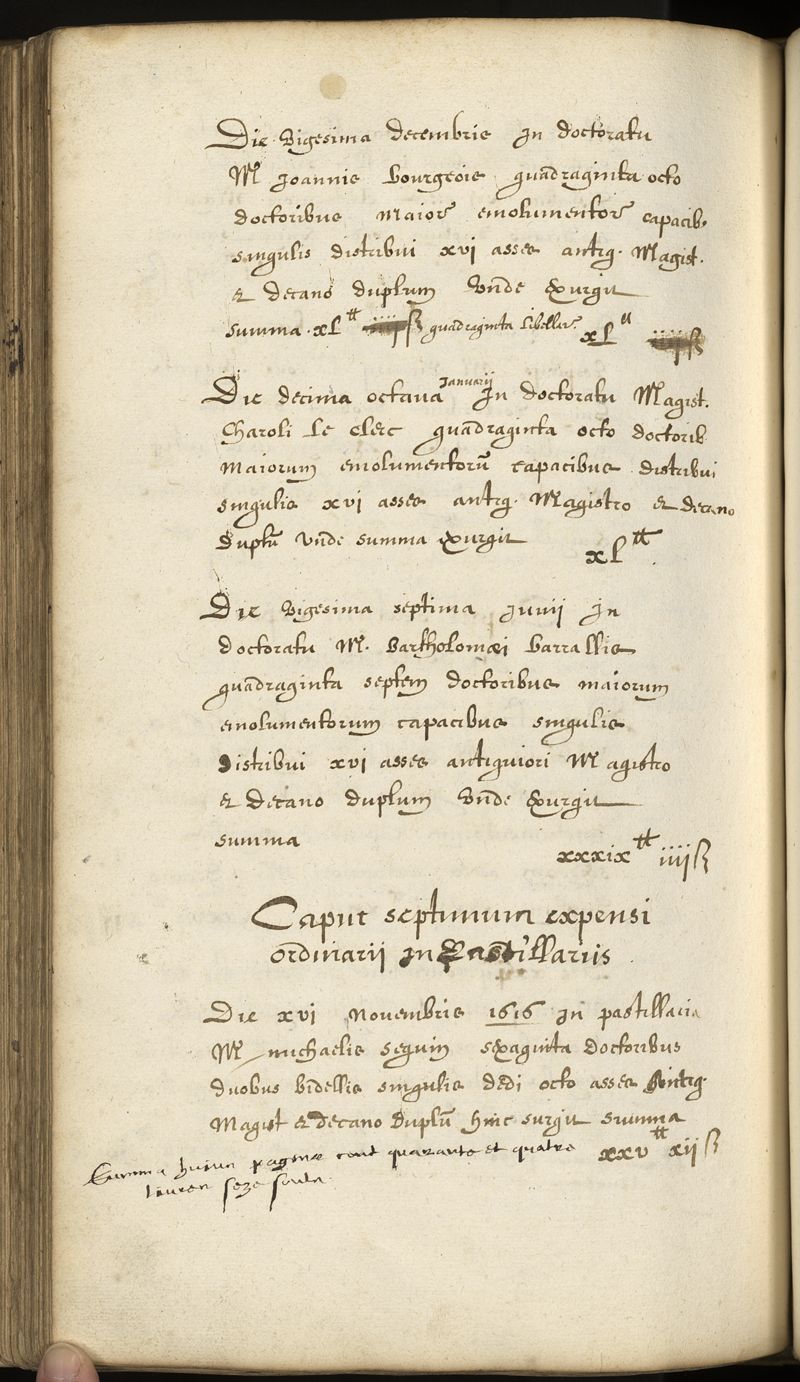 Die vigesima decembris In doctoratu
M^ri Joannis Bourgeois quadraginta octo
doctoribus maior emolumentor capacib
singulis distribui xvi asses antiq. Magist.
et decano duplum Unde Exurgit
summa xl^tt quadraginta libellar. xl^tt
Die decima octava Januarij In doctoratu Magist.
Charoli le Clerc quadraginta octo doctorib
maiorum emolumentorũ capacibus distribui
singulis xvi asses antiq. Magistro et decano
duplũ Unde summa Exurgit xl^tt.
Die vigesima septima Junij In
doctoratu M. Bartholomæi Barralis
quadraginta septem doctoribus maiorum
emolumentorum capacibus singulis
distribui xvi asses antiquiori Magistro
et decano duplum Unde Exurgit
summa xxxix^tt iiiiß
Caput septimum expensi
ordinarii In Pastillariis.
Die xvi Novembris 1616 In pastillaria
M michaelis seguin sexaginta doctoribus
duobus bidellis singulis dedi octo asses Antiq.
Magist et decano duplũ hinc surgit summa
xxv^tt xijß
Summa huius paginæ cent quarante et quatre
livres seze soulz